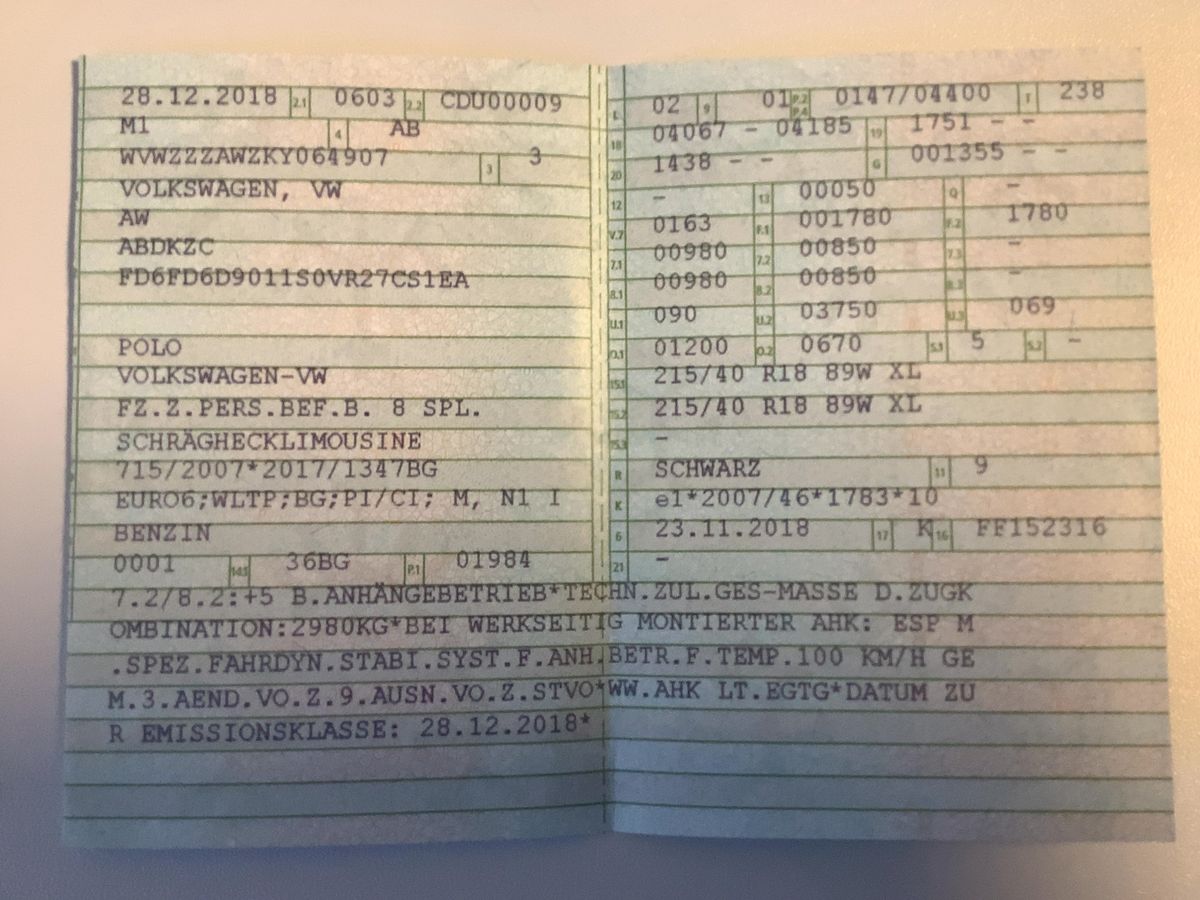 28.12.2018 2.1 0603 2.2 CDU00009
M1 4 AB
WVWZZZAWZKY064907 3 3
VOLKSWAGEN, VW
AW
ABDKZC
FD6FD6D9011S0VR27CS1EA
POLO
VOLKSWAGEN-VW
FZ.Z.PERS.BEF.B. 8 SPL.
SCHRÄGHECKLIMOUSINE
715/2007*2017/1347BG
EURO6;WLTP;BG;PI/CI; M, N1 I
BENZIN
0001 14.1 36BG P.1 01984
L 02 9 01 P.2 P.4 0147/04400 T 238
18 04067 - 04185 19 1751 - -
20 1438 - - G 001355 - -
12 - 13 00050 Q -
V.7 0163 F.1 001780 F.2 1780
7.1 00980 7.2 00850 7.3 -
8.1 00980 8.2 00850 8.3 -
U.1 090 U.2 03750 U.3 069
O.1 01200 O.2 0670 S.1 5 S.2 -
15.1 215/40 R18 89W XL
15.2 215/40 R18 89W XL
15.3 -
R SCHWARZ 11 9
K e1*2007/46*1783*10
6 23.11.2018 17 K 16 FF152316
21 -
7.2/8.2:+5 B.ANHÄNGEBETRIEB*TECHN.ZUL.GES-MASSE D.ZUGK
OMBINATION:2980KG*BEI WERKSEITIG MONTIERTER AHK: ESP M
.SPEZ.FAHRDYN.STABI.SYST.F.ANH.BETR.F.TEMP.100 KM/H GE
M.3.AEND.VO.Z.9.AUSN.VO.Z.STVO*WW.AHK LT.EGTG*DATUM ZU
R EMISSIONSKLASSE: 28.12.2018*